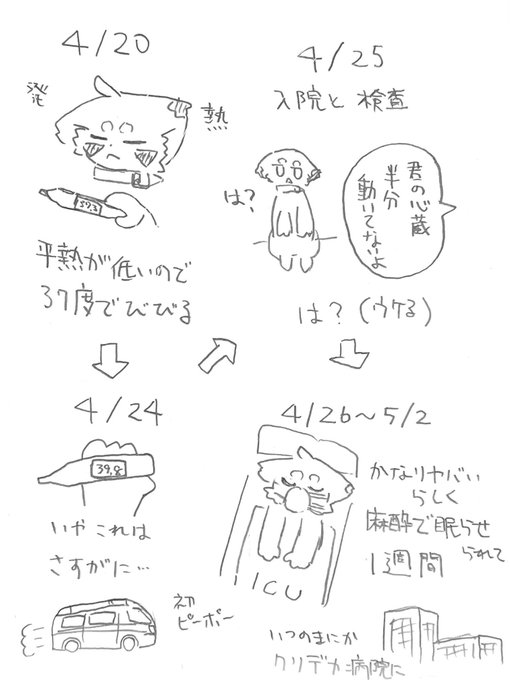 4/20
発
熱
37.3
平熱が低いので
37度でびびる
4/24
39.8
いやこれは
さすがに…
初
ピーポー
4/25
入院と検査
は?
君の心蔵
半分
動いてないよ
は?(ウケる)
4/26~5/2
かなりヤバい
らしく
麻酔で眠らせ
られて
1週間
ICU
いつのまにか
クソデカ病院に